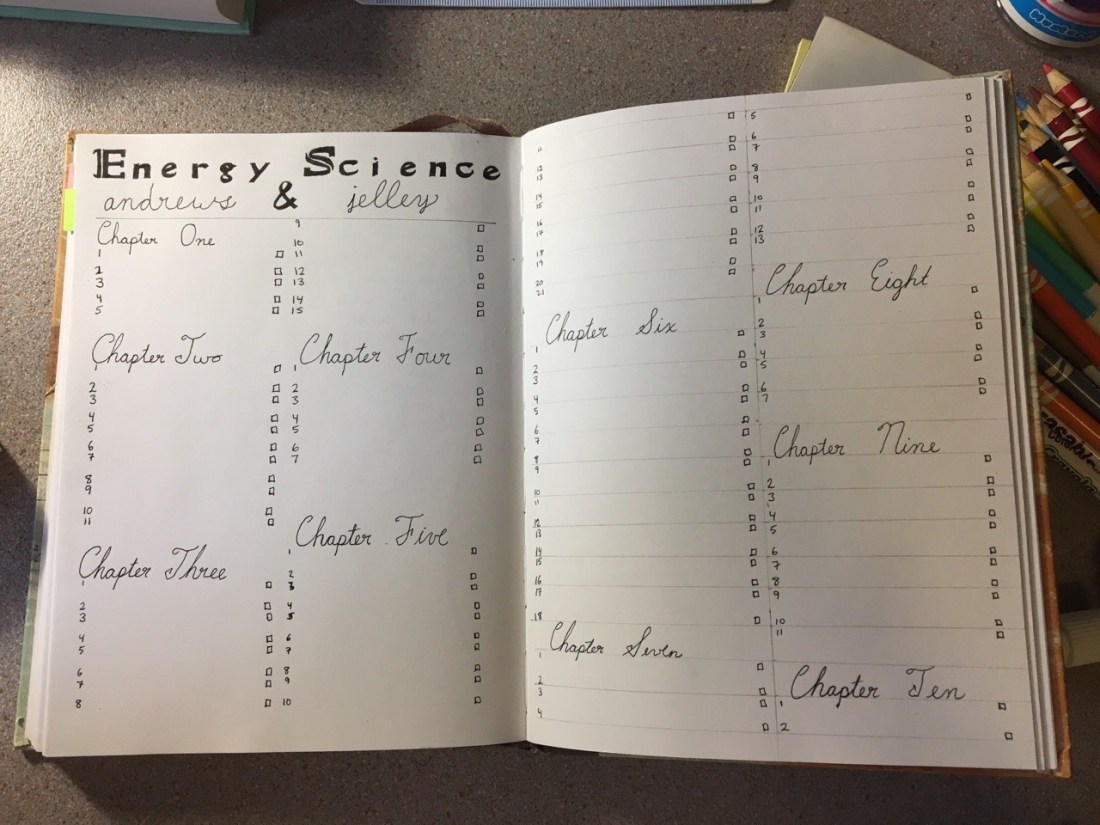 Energy Science
andrews & jelley
Chapter One
1
2
3
4
5
Chapter Two
1
2
3
4
5
6
7
8
9
10
11
Chapter Three
1
2
3
4
5
6
7
8
9
10
11
12
13
14
15
Chapter Four
1
2
3
4
5
6
7
Chapter Five
1
2
3
4
5
6
7
8
9
10
11
12
13
14
15
16
17
18
19
20
21
Chapter Six
1
2
3
4
5
6
7
8
9
10
11
12
13
14
15
16
17
18
Chapter Seven
1
2
3
4
5
6
7
8
9
10
11
12
13
Chapter Eight
1
2
3
4
5
6
7
Chapter Nine
1
2
3
4
5
6
7
8
9
10
11
Chapter Ten
1
2